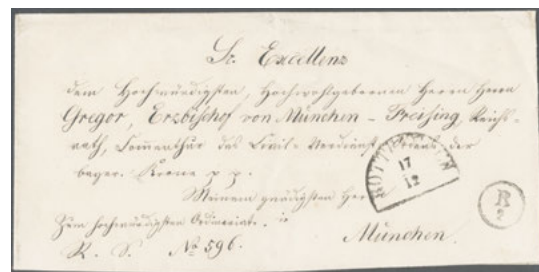 Sr. Excellenz
dem Hochwürdigsten, Hochwohlgebornen Herrn Herrn
Gregor, Erzbischof von München - Freising, Reichs-
rath, Commenthür des Civil-Verdienst-Ordens der
bayer. Krone p.p.
Meinem gnädigsten Herrn
ROTT
17
12
R
2
Zum hochwürdigsten Ordinariate.
R. S. № 596.
München.